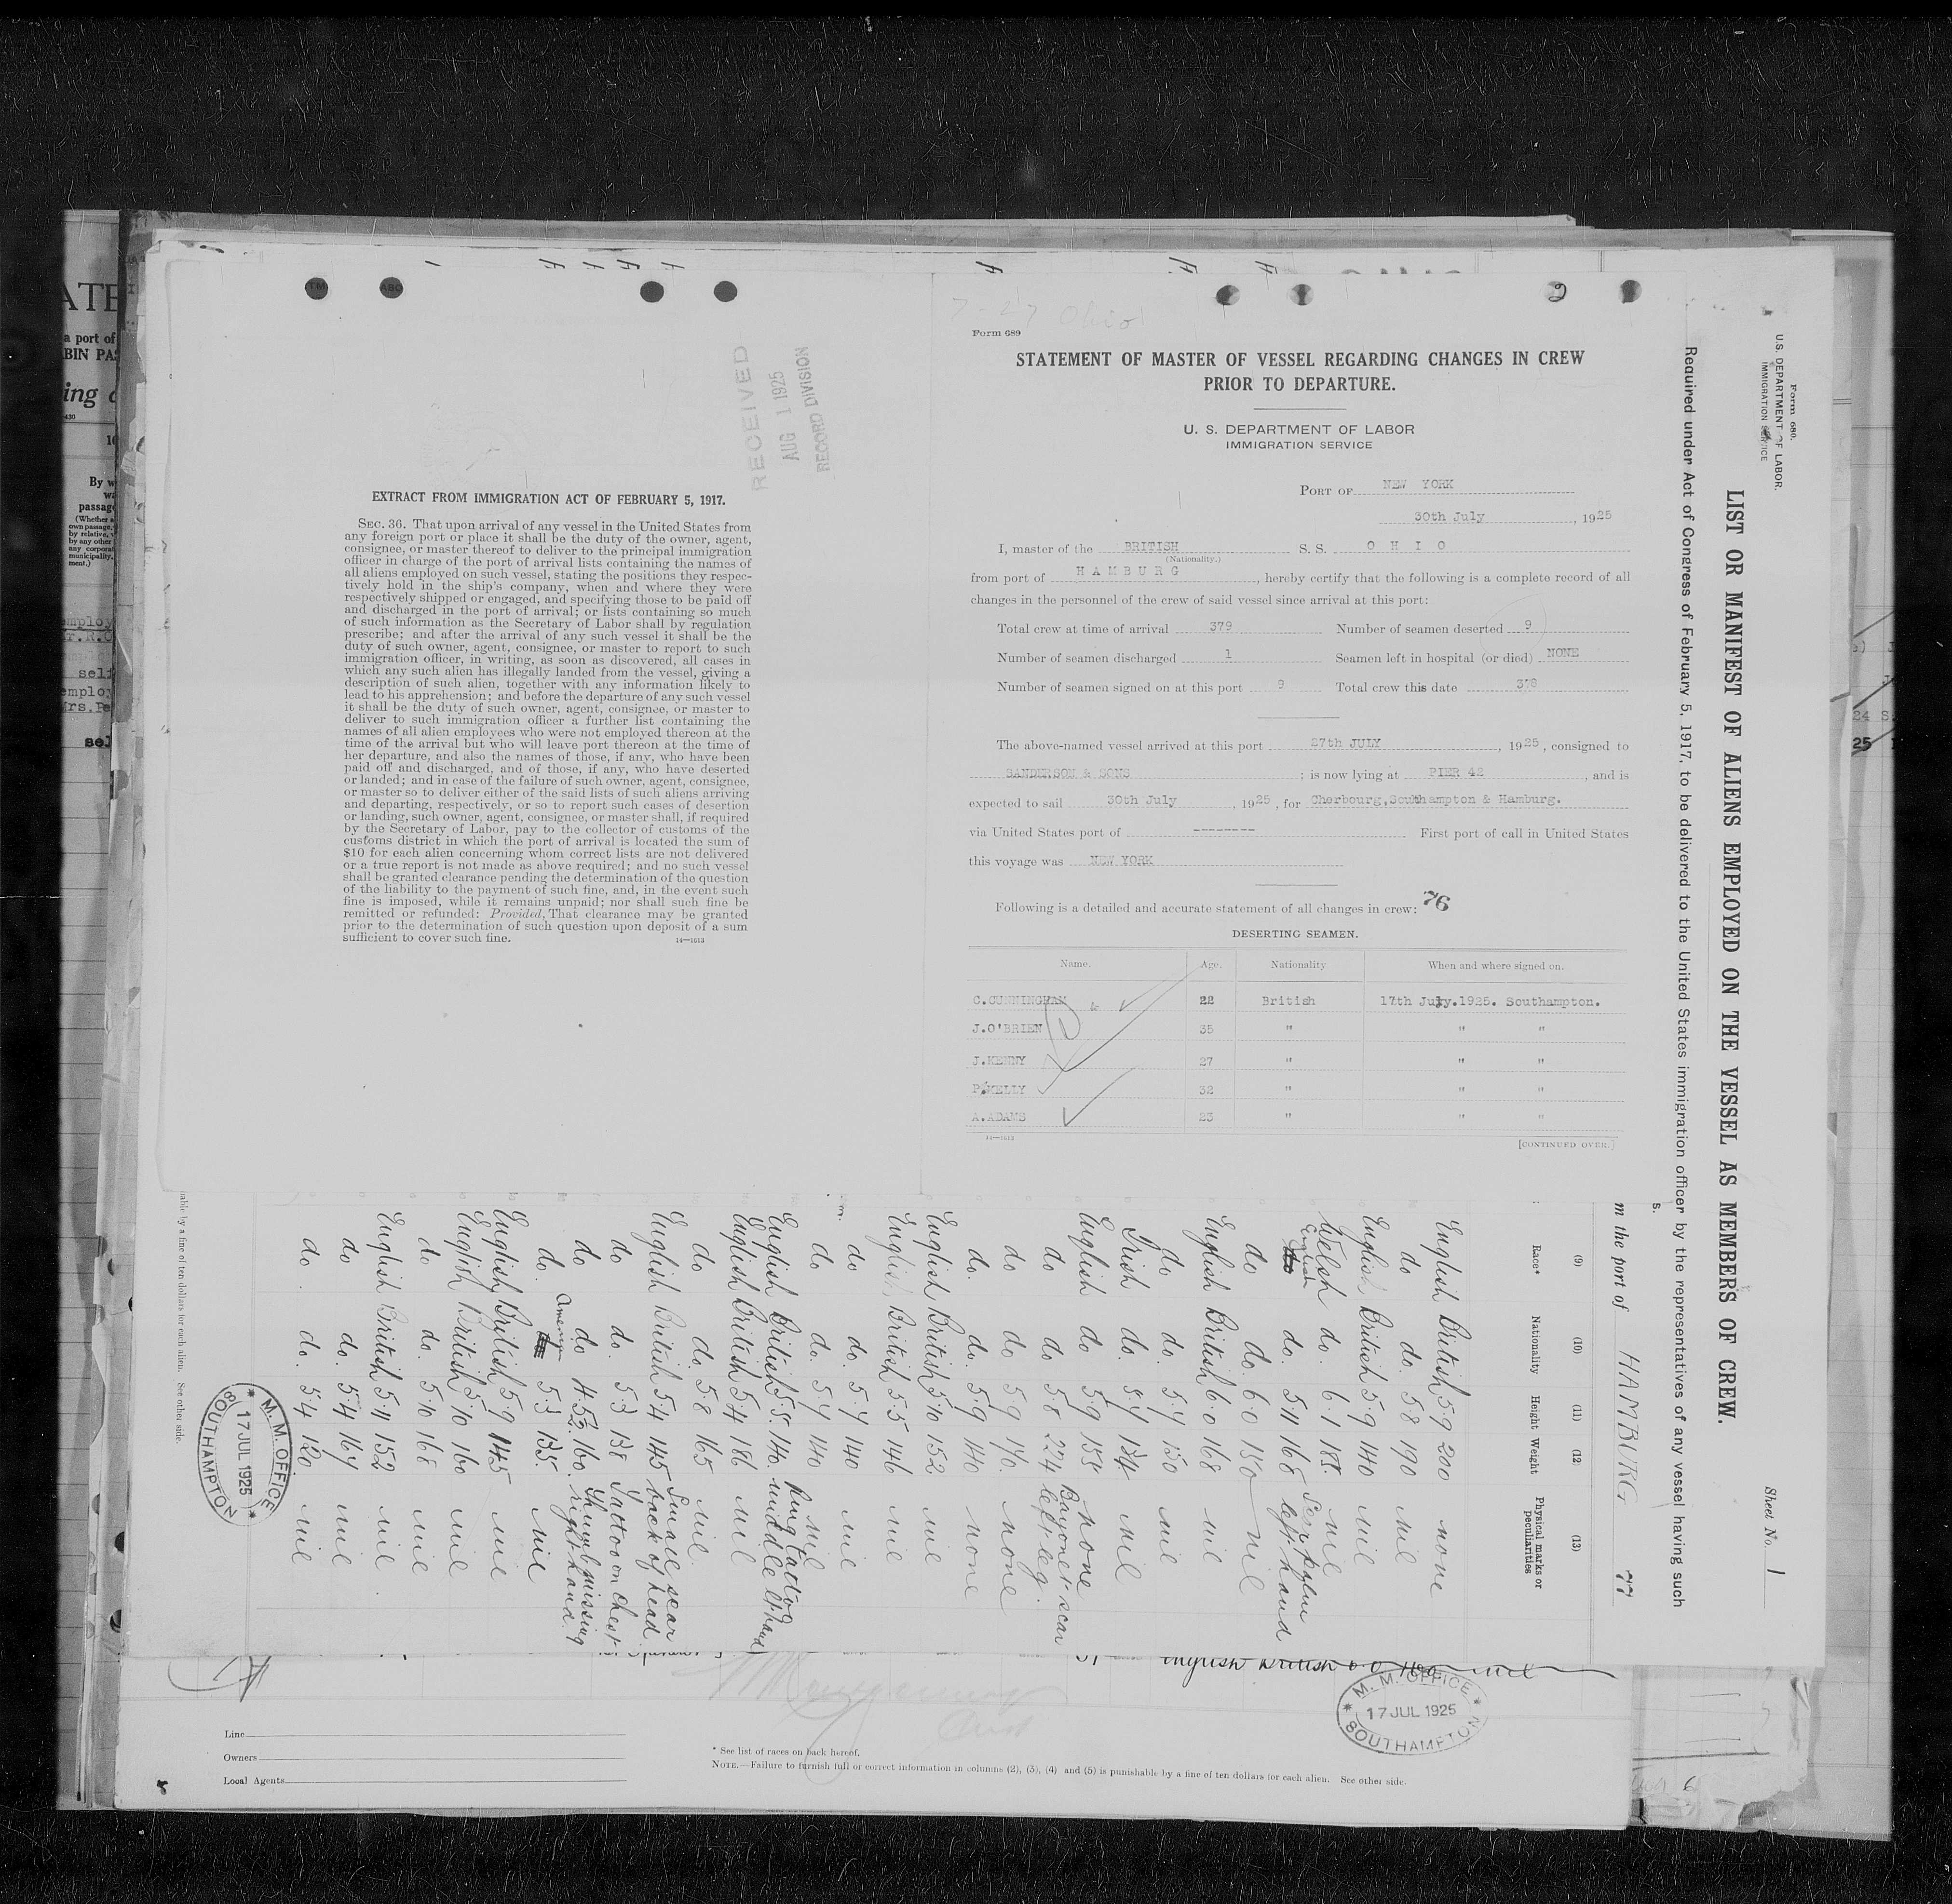 Form 689
STATEMENT OF MASTER OF VESSEL REGARDING CHANGES IN CREW
PRIOR TO DEPARTURE.
U. S. DEPARTMENT OF LABOR
IMMIGRATION SERVICE
PORT OF NEW YORK
30th July, 1925
I, master of the BRITISH S. S. O H I O
(Nationality.)
from port of H A M B U R G, hereby certify that the following is a complete record of all
changes in the personnel of the crew of said vessel since arrival at this port:
Total crew at time of arrival 379 Number of seamen deserted 9
Number of seamen discharged 1 Seamen left in hospital (or died) NONE
Number of seamen signed on at this port 9 Total crew this date 378
The above-named vessel arrived at this port 27th JULY, 1925, consigned to
SANDERSON & SONS ; is now lying at PIER 42, and is
expected to sail 30th July, 1925, for Cherbourg,Southampton & Hamburg.
via United States port of -------- First port of call in United States
this voyage was NEW YORK
Following is a detailed and accurate statement of all changes in crew: 76
DESERTING SEAMEN.
Name. Age. Nationality When and where signed on.
C.CUNNINGHAM 22 British 17th July.1925. Southampton.
J.O'BRIEN 35 " " "
J.KENNY 27 " " "
P.KELLY 32 " " "
A.ADAMS 23 " " "
14—1613 [CONTINUED OVER.]
7-27 Ohio
RECEIVED
AUG 1 1925
RECORD DIVISION
EXTRACT FROM IMMIGRATION ACT OF FEBRUARY 5, 1917.
SEC. 36. That upon arrival of any vessel in the United States from
any foreign port or place it shall be the duty of the owner, agent,
consignee, or master thereof to deliver to the principal immigration
officer in charge of the port of arrival lists containing the names of
all aliens employed on such vessel, stating the positions they respec-
tively hold in the ship's company, when and where they were
respectively shipped or engaged, and specifying those to be paid off
and discharged in the port of arrival; or lists containing so much
of such information as the Secretary of Labor shall by regulation
prescribe; and after the arrival of any such vessel it shall be the
duty of such owner, agent, consignee, or master to report to such
immigration officer, in writing, as soon as discovered, all cases in
which any such alien has illegally landed from the vessel, giving a
description of such alien, together with any information likely to
lead to his apprehension; and before the departure of any such vessel
it shall be the duty of such owner, agent, consignee, or master to
deliver to such immigration officer a further list containing the
names of all alien employees who were not employed thereon at the
time of the arrival but who will leave port thereon at the time of
her departure, and also the names of those, if any, who have been
paid off and discharged, and of those, if any, who have deserted
or landed; and in case of the failure of such owner, agent, consignee,
or master so to deliver either of the said lists of such aliens arriving
and departing, respectively, or so to report such cases of desertion
or landing, such owner, agent, consignee, or master shall, if required
by the Secretary of Labor, pay to the collector of customs of the
customs district in which the port of arrival is located the sum of
$10 for each alien concerning whom correct lists are not delivered
or a true report is not made as above required; and no such vessel
shall be granted clearance pending the determination of the question
of the liability to the payment of such fine, and, in the event such
fine is imposed, while it remains unpaid; nor shall such fine be
remitted or refunded: Provided, That clearance may be granted
prior to the determination of such question upon deposit of a sum
sufficient to cover such fine. 14—1613
Form 680.
U.S. DEPARTMENT OF LABOR.
IMMIGRATION SERVICE
Sheet No. 1
LIST OR MANIFEST OF ALIENS EMPLOYED ON THE VESSEL AS MEMBERS OF CREW.
Required under Act of Congress of February 5, 1917, to be delivered to the United States immigration officer by the representatives of any vessel having such
m the port of HAMBURG 77
(9) (10) (11) (12) (13)
Race* Nationality Height Weight Physical marks or peculiarities
English British 5·9 200 none
do do. 5·8 190 nil
English British 5·9 140 nil
Welsh do. 6·1 188. nil
English do. 5·11 168 left hand
do do. 6·0 180 nil
English British 6·0 168 nil
do do. 5·7 150 nil
Irish do. 5·7 134 nil
English do 5·9 158 none
do do 5·8 224 Bayonet scar left leg.
do do 5·9 176. none
do. do. 5·9 140 none
English British 5·10 152 nil
English British 5·5 146 nil
do do. 5·7 140 nil
do do. 5·7 140 nil
English British 5·8. 140. Ring tattoo middle L hand
English British 5·4 186 nil
do do 5·8 165 nil.
English British 5·4 145 Small scar back of head
do do. 5·3 138 Tattoo on chest
do do 160. Thumb missing right hand.
do. 5·3 135. nil
English British 5·9 145 nil
English British 5·10 160 nil
do do. 5·10 168 nil
English British 5·11 152 nil.
do do. 5·4 167 nil
do. do. 5·4 120 nil
M. M. OFFICE
17 JUL 1925
SOUTHAMPTON
able by a fine of ten dollars for each alien. See other side.
English British nil
M. M. OFFICE
17 JUL 1925
SOUTHAMPTON
Line
Owners
Local Agents
* See list of races on back hereof.
NOTE.—Failure to furnish full or correct information in columns (2), (3), (4) and (5) is punishable by a fine of ten dollars for each alien. See other side.